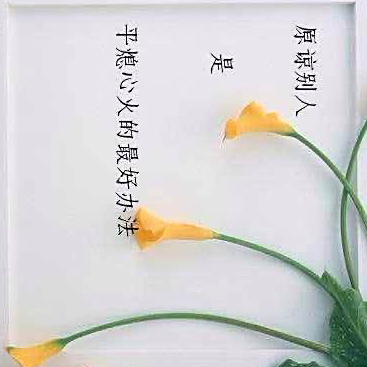 原谅别人
是
平熄心火的最好办法